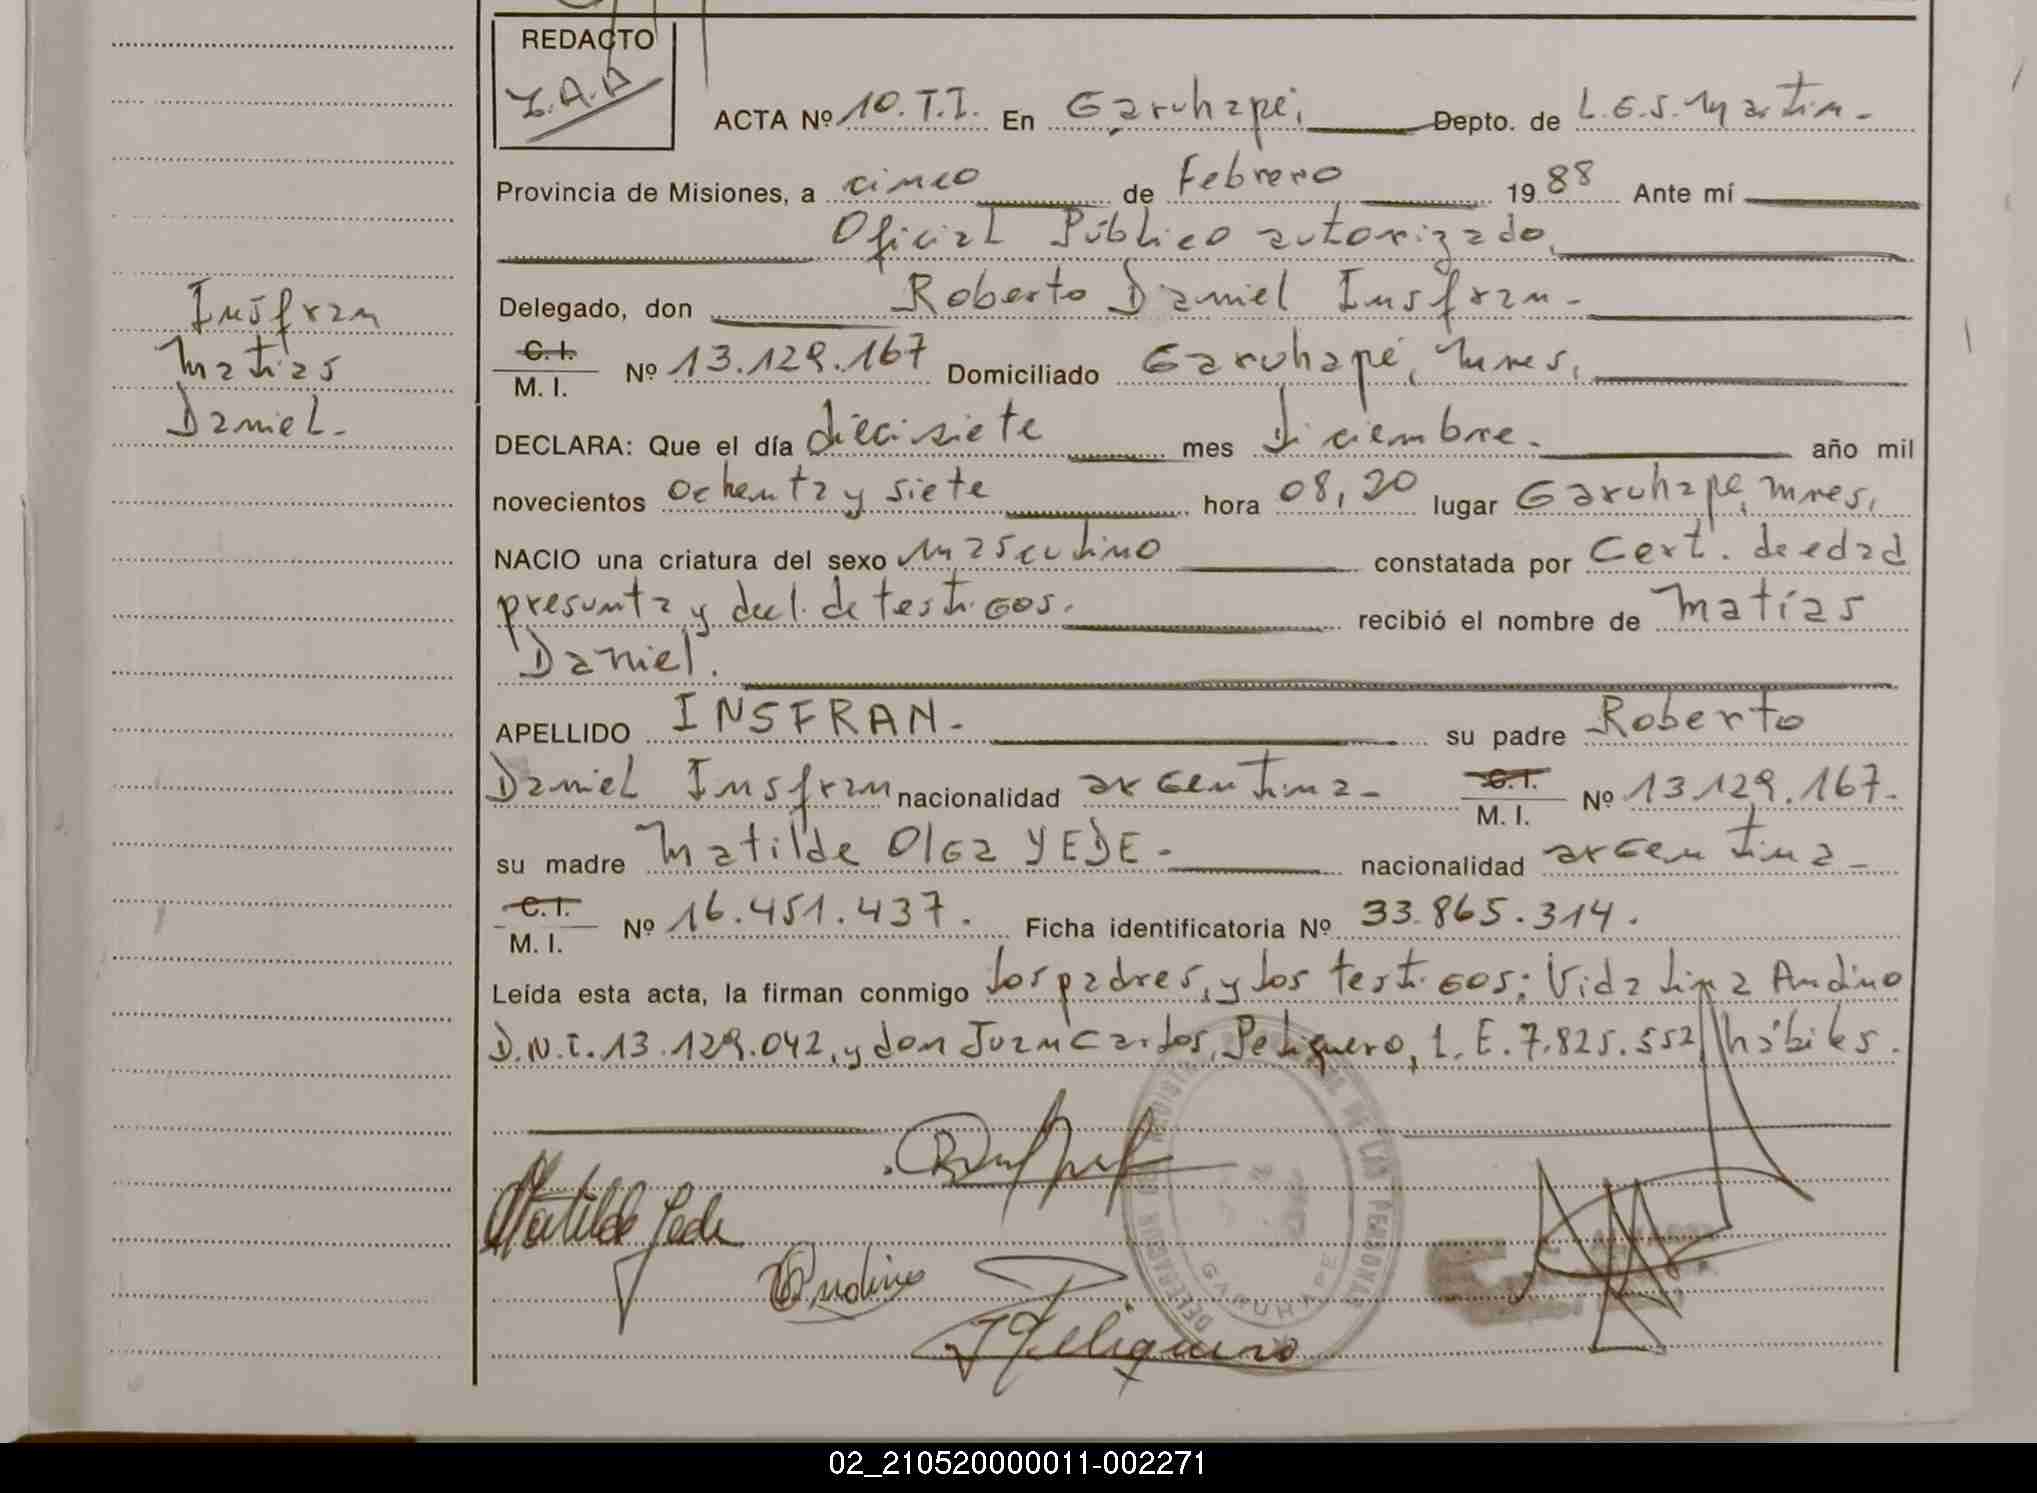 REDACTO
Z.A.A
ACTA Nº 10.T.I. En Garuhapé, Depto. de L.G.S. Martin.
Provincia de Misiones, a cinco de Febrero 1988 Ante mí
Oficial Público autorizado,
Delegado, don Roberto Daniel Insfran.
C.I. M. I. Nº 13.129.167 Domiciliado Garuhapé, Mnes,
DECLARA: Que el día diecisiete mes Diciembre. año mil
novecientos Ochenta y siete hora 08,20 lugar Garuhape, Mnes,
NACIO una criatura del sexo masculino constatada por Cert. de edad
presunta y decl. de testigos. recibió el nombre de Matías
Daniel.
APELLIDO INSFRAN. su padre Roberto
Daniel Insfran nacionalidad argentina. C.I. M. I. Nº 13.129.167.
su madre Matilde Olga YEDE. nacionalidad argentina.
C.I. M. I. Nº 16.451.437. Ficha identificatoria Nº 33.865.314.
Leída esta acta, la firman conmigo los padres, y los testigos: Vidalina Andino
D.N.I. 13.129.042, y don Juan Carlos Peliquero, L.E. 7.825.552 hábiles.
Insfran
Matias
Daniel.
Matilde Yede
Andino
J Peliquero
DELEGACION REGISTRO DE LAS PERSONAS
GARUHAPE
02_210520000011-002271